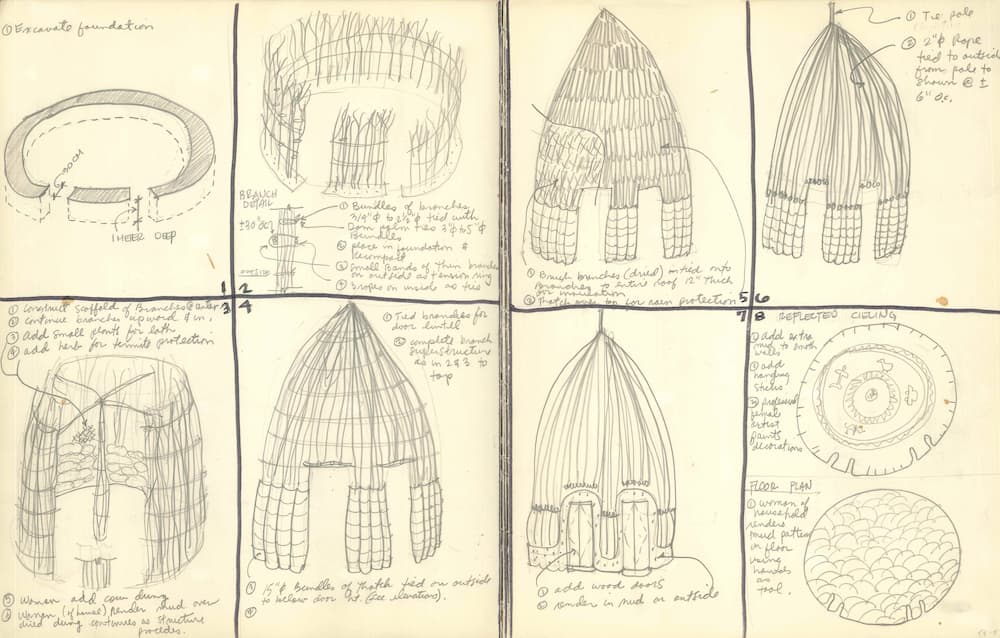 ① Excavate foundation
60-100CM
1 METER DEEP
1
BRANCH
DETAIL
±30"OC
① Bundles of branches
3/4"ϕ to 2 1/2"ϕ tied with
Dom palm ties 3"ϕ to 5"ϕ
Bundles
② place in foundation &
Recompact
③ Small Bands of thin branches
on outside as tension ring
④ 2 ropes on inside as ties
OUTSIDE
2
① Construct scaffold of Branches @ center
② continue branches upward & in;
③ add small plants for lath
④ add herb for termite protection
3
⑤ Women add cow dung
⑥ Women (of house) Render mud over
dried dung continues as structure
procedes.
4
① Tied branches for
door lintel
② complete branch
superstructure
as in 2 & 3 to
top
③ 15"ϕ Bundles of thatch tied on outside
to below door ht. (see elevation).
④
① Brush branches (dried) tied onto
Branches to entire roof 12" thick
for insulation
② Thatch over top for rain protection
5
① Tie, pole
② 2"ϕ Rope
tied to outside
from pole to
shown @ ±
6" O.C.
6
7
① add wood doors
② render in mud on outside
8 REFLECTED CIELING
① add extra
mud to smooth
walls
② add
hanging
sticks
③ professional
female
artist
paints
decorations
FLOOR PLAN
① woman of
household
renders
mud pattern
on floor
using
hands
as
tool.